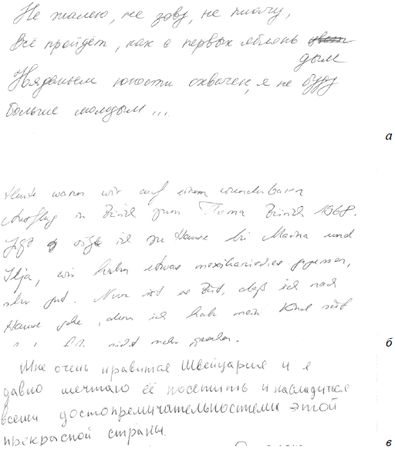 Не жалею, не зову, не плачу,
Всё пройдёт, как с первых яблонь
дым
охвачен, я не буду
больше молодым...
а
Heute waren wir auf einem wunderbaren
in Zürich zum Thema Zürich 1968.
ich zu Hause bei Marina und
Ilja, wir haben etwas mexikanisches gegessen,
sehr gut. Nun ist es Zeit, daß ich nach
Hause gehe, denn ich hab mein Kind seit
nicht mehr gesehen.
б
Мне очень нравится Швейцария и я
давно мечтаю её посетить и насладиться
всеми достопремичательностями этой
прекрасной страны.
в